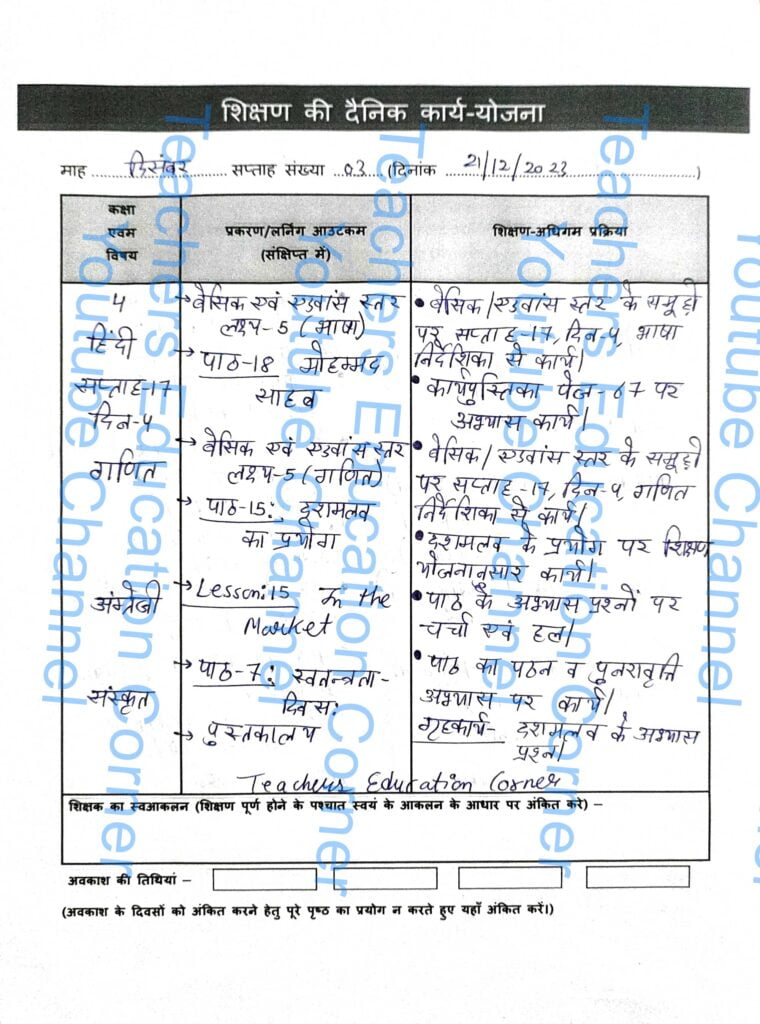 शिक्षण की दैनिक कार्य-योजना
माह दिसंबर सप्ताह संख्या 03 (दिनांक 21/12/2023)
कक्षा
एवम
विषय
प्रकरण/लर्निंग आउटकम
(संक्षिप्त में)
शिक्षण-अधिगम प्रक्रिया
4
हिंदी
सप्ताह-17
दिन-4
→ बेसिक एवं एडवांस स्तर
लक्ष्य-5 (भाषा)
→ पाठ-18 मोहम्मद
साहब
• बेसिक/एडवांस स्तर के समूहों
पर सप्ताह-17, दिन-4, भाषा
निर्देशिका से कार्य।
• कार्यपुस्तिका पेज-67 पर
अभ्यास कार्य।
गणित
→ बेसिक एवं एडवांस स्तर
लक्ष्य-5 (गणित)
→ पाठ-15: दशमलव
का प्रयोग
• बेसिक/एडवांस स्तर के समूहों
पर सप्ताह-17, दिन-4, गणित
निर्देशिका से कार्य।
• दशमलव के प्रयोग पर शिक्षण
योजनानुसार कार्य।
अंग्रेजी
→ Lesson:15 In the
Market
• पाठ के अभ्यास प्रश्नों पर
चर्चा एवं हल।
संस्कृत
→ पाठ-7: स्वतन्त्रता-
दिवस:
→ पुस्तकालय
• पाठ का पठन व पुनरावृत्ति
अभ्यास पर कार्य।
गृहकार्य- दशमलव के अभ्यास
प्रश्न।
Teachers Education Corner
शिक्षक का स्वआकलन (शिक्षण पूर्ण होने के पश्चात स्वयं के आकलन के आधार पर अंकित करे) –
अवकाश की तिथियां –
(अवकाश के दिवसों को अंकित करने हेतु पूरे पृष्ठ का प्रयोग न करते हुए यहाँ अंकित करें।)
Teachers Education Corner
Youtube Channel
Teachers Education Corner
Youtube Channel
Teachers Education Corner
Youtube Channel